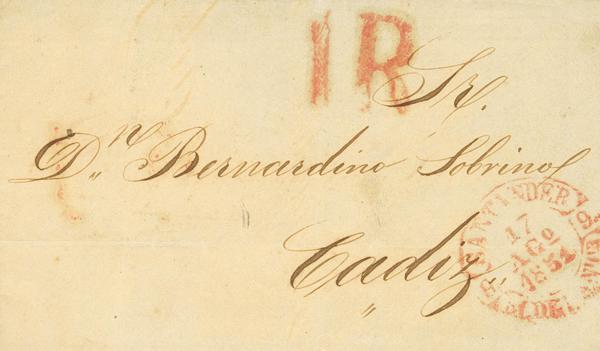 1R
Sr.
Dn Bernardino Sobrino
Cadiz
SANTANDER
17
AGO
1851